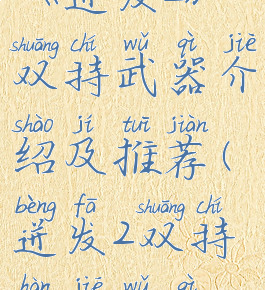 《迸发2》
shuāng chí wǔ qì jiè
双持武器介
shào jí tuī jiàn
绍及推荐(
bèng fā shuāng chí
迸发2双持
hàn jiē wǔ qì